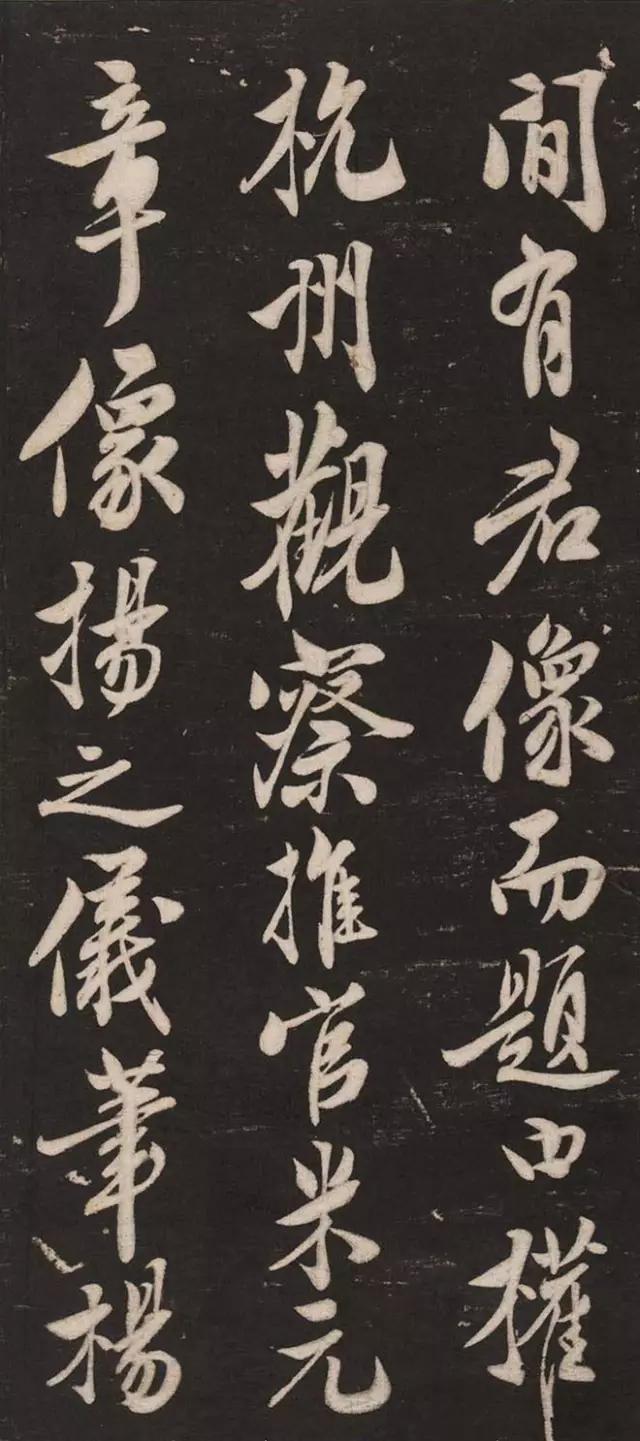 間有君像而題曰權
杭州觀察推官米元
章像揚之儀筆楊